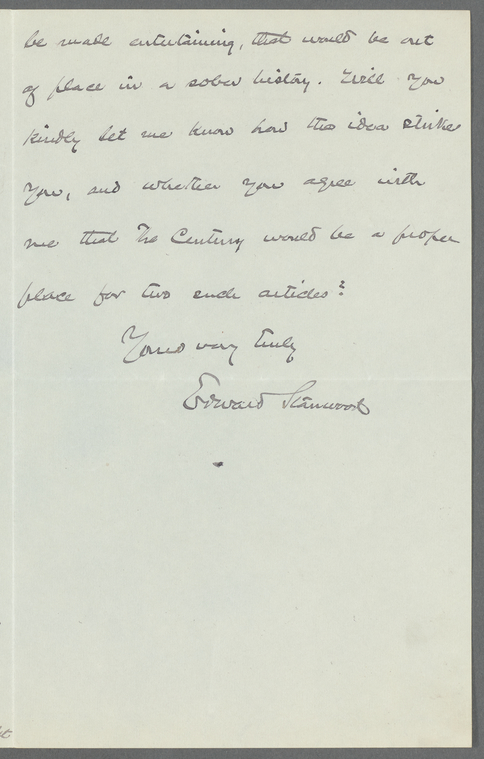 be made entertaining, that would be out
of place in a sober history. Will you
kindly let me know how the idea strikes
you, and whether you agree with
me that The Century would be a proper
place for two such articles?
Yours very truly
Edward Stanwood